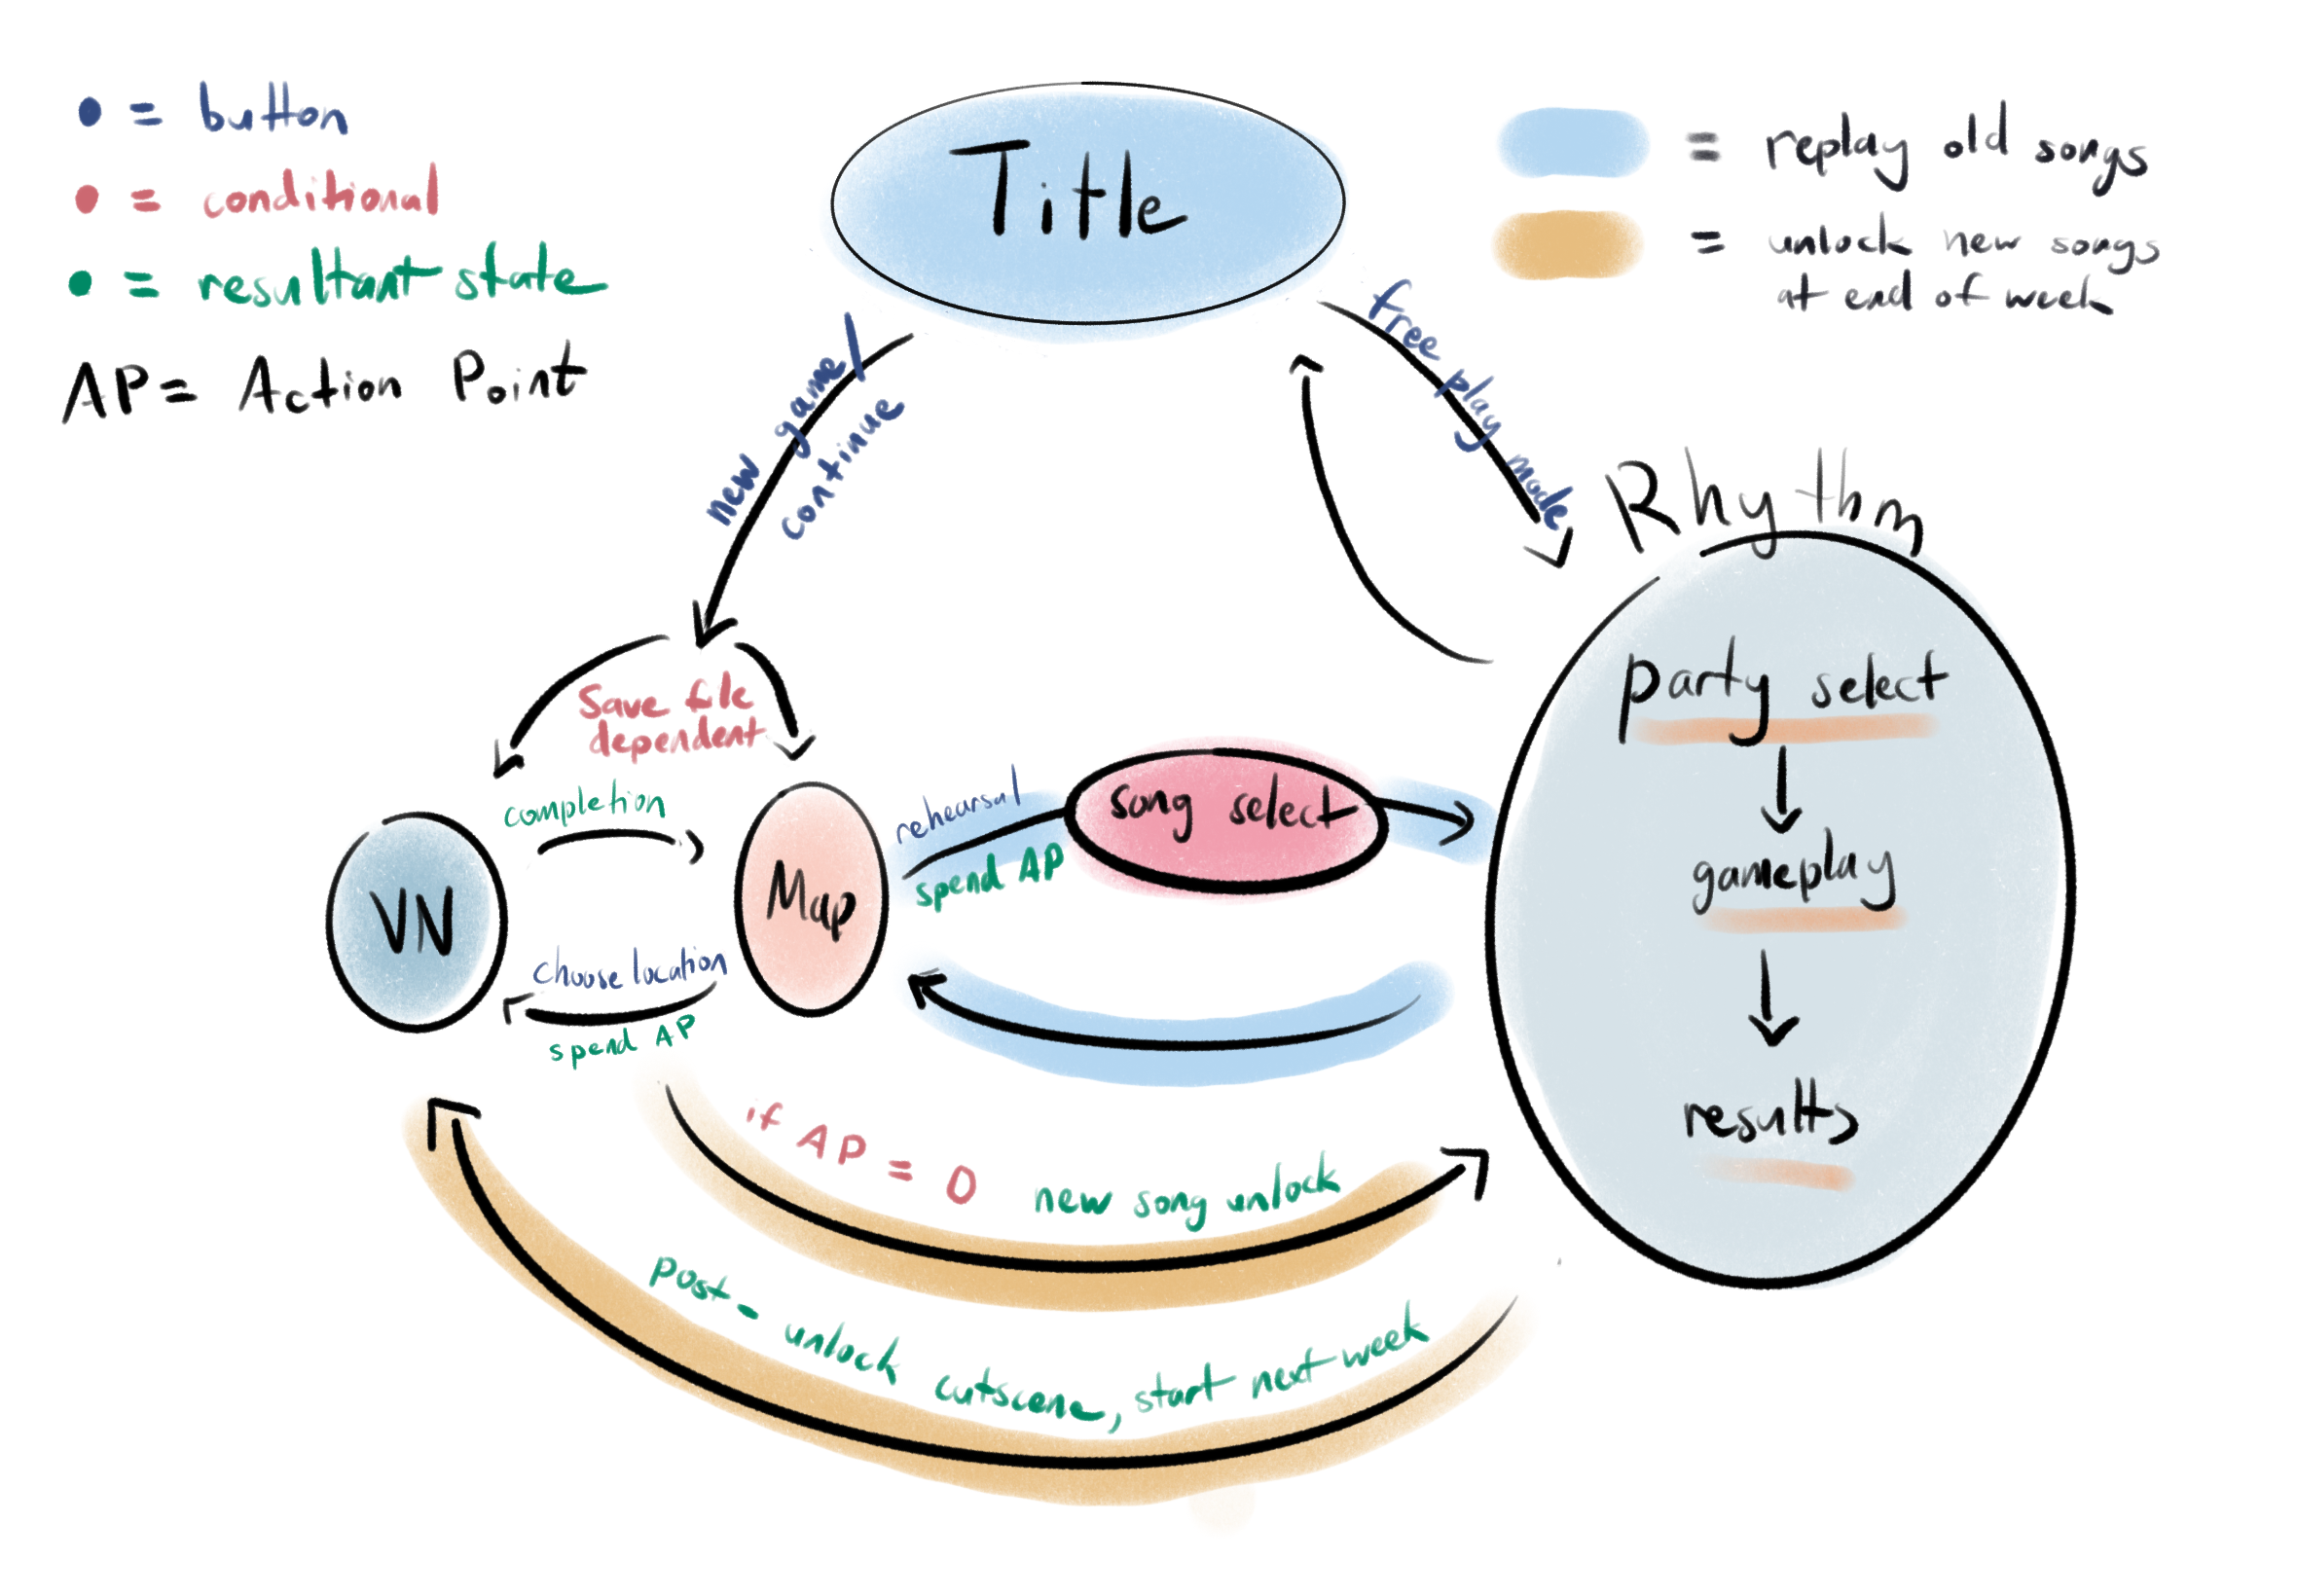 • = button
• = conditional
• = resultant state
AP = Action Point
Title
= replay old songs
= unlock new songs
at end of week
new game/
continue
free play mode
Rhythm
party select
gameplay
results
Save file
dependent
completion
VN
Map
choose location
spend AP
rehearsal
spend AP
song select
if AP = 0 new song unlock
post-unlock cutscene, start next week